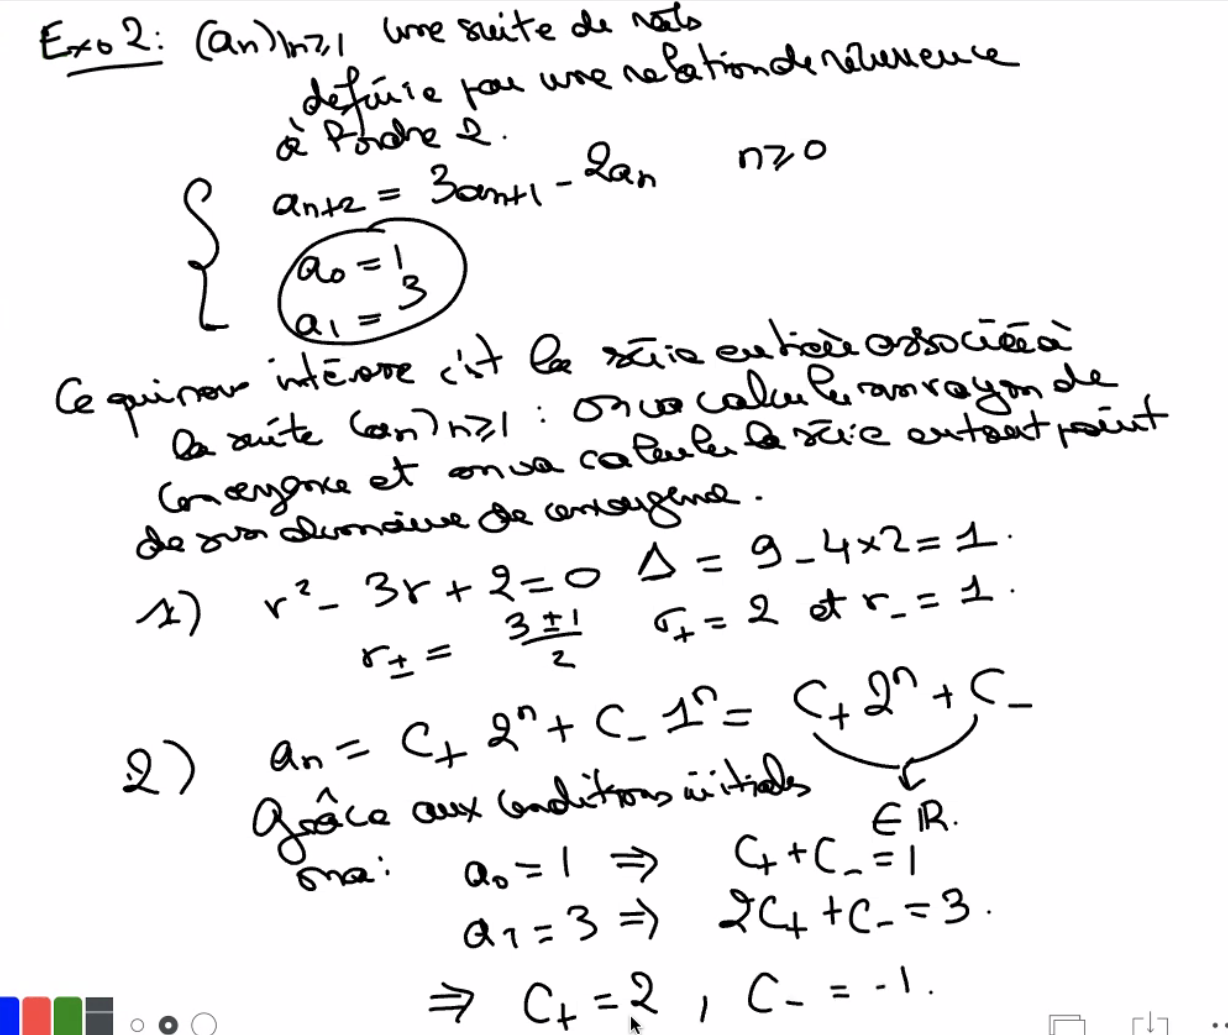 Exo 2: (an)n≥1 une suite de réels
définie par une relation de récurrence
à l'ordre 2.
an+2 = 3an+1 - 2an n≥0
a0 = 1
a1 = 3
Ce qui nous intéresse c'est la série entière associée à
la suite (an)n≥1 : on va calculer son rayon de
convergence et on va calculer la série en tout point
de son domaine de convergence.
1) r² - 3r + 2 = 0 Δ = 9 - 4×2 = 1.
r± = (3±1)/2 r+ = 2 et r- = 1.
2) an = C+ 2ⁿ + C- 1ⁿ = C+ 2ⁿ + C-
∈ ℝ.
Grâce aux conditions initiales
on a : a0 = 1 ⇒ C+ + C- = 1
a1 = 3 ⇒ 2C+ + C- = 3.
⇒ C+ = 2 , C- = -1.